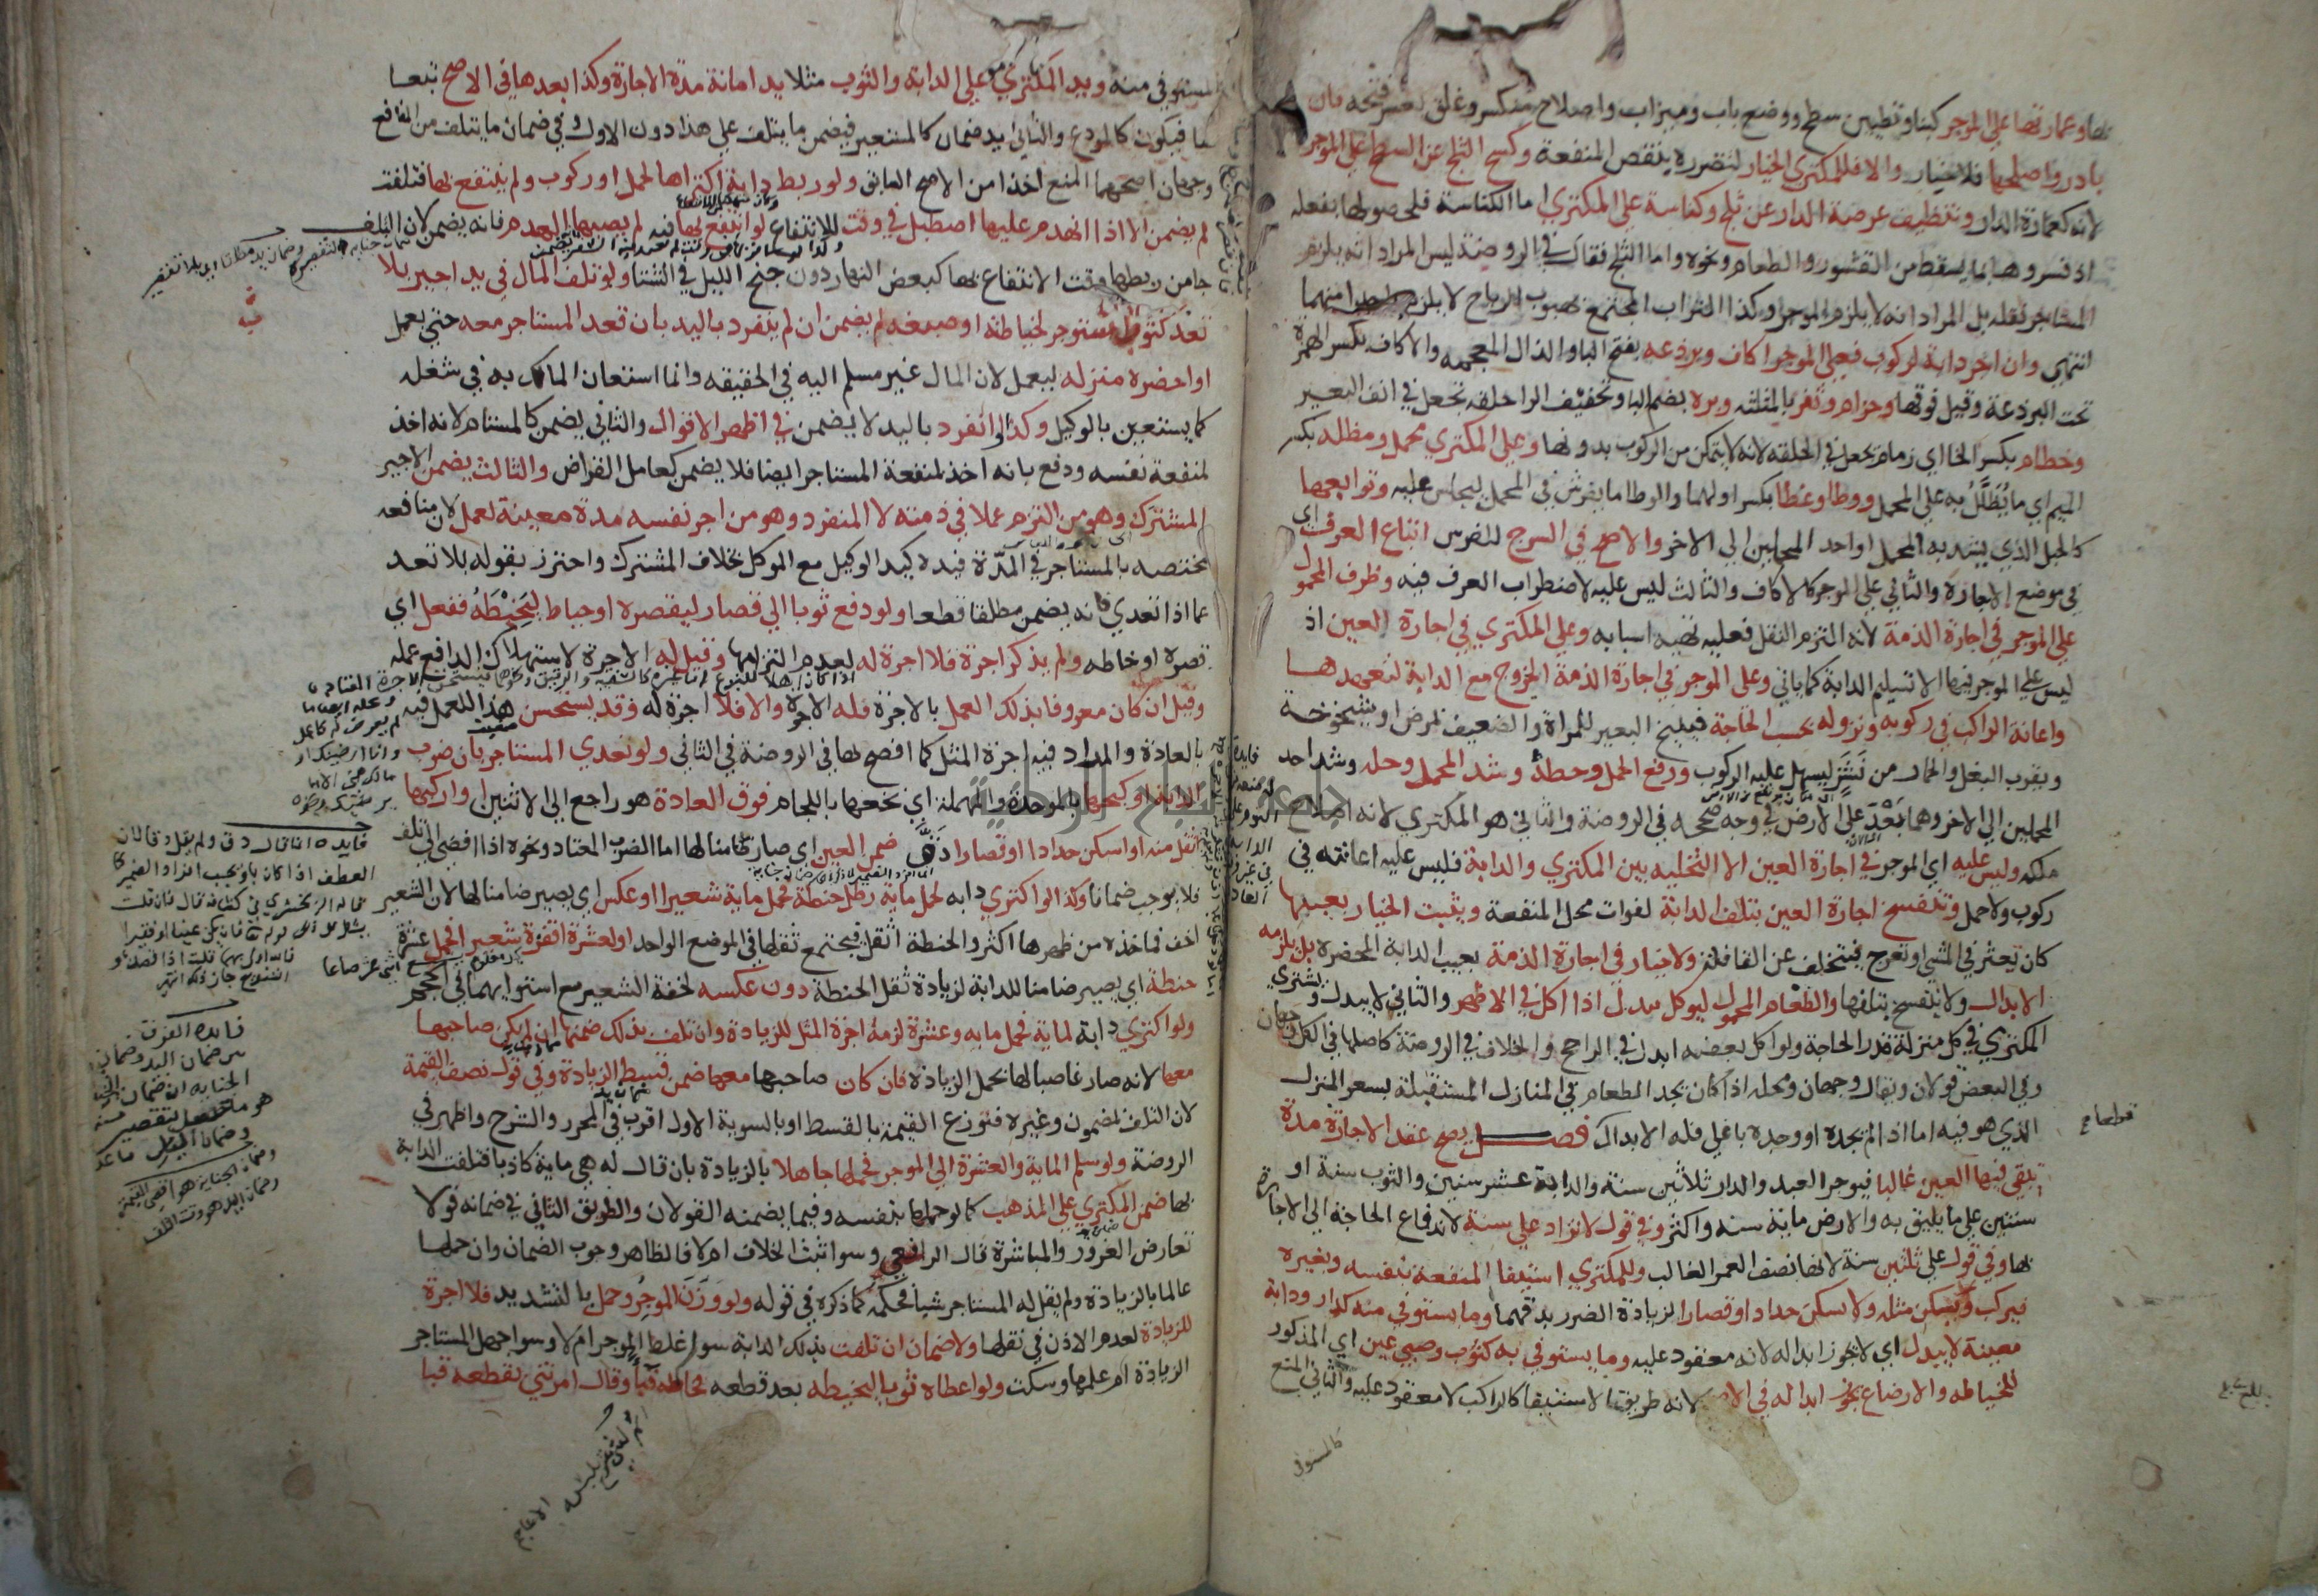 لها وعمارتها على الموجر كبناء وتطيين سطح ووضع باب وميزاب واصلاح منكسر وغلق يعسر فتحه فان
بادر واصلحها فلا خيار والا فللمكتري الخيار لتضرره بنقص المنفعة وكسح الثلج عن السطح على الموجر
لانه كعمارة الدار وتنظيف عرصة الدار عن ثلج وكناسة على المكتري اما الكناسة فلحصولها بفعله
اذ فسروها بما يسقط من القشور والطعام ونحوه واما الثلج فقال في الروضة ليس المراد انه يلزم
المستاجر نقله بل المراد انه لا يلزم الموجر وكذا التراب المجتمع بهبوب الرياح لا يلزم واحدا منهما
انتهى وان اجر دابة لركوب فعلى الموجر اكاف وبرذعه بفتح البا والذال المعجمه والاكاف بكسر الهمزة
تحت البرذعة وقيل فوقها وحزام وثفر بالمثلثه وبره بضم البا وتخفيف الرا حلقه تجعل في انف البعير
وخطام بكسر الخا اي زمام يجعل في الحلقه لانه لا يتمكن من الركوب بدونها وعلى المكتري محمل ومظله بكسر
الميم اي ما يُظَلَّلُ به على المحمل ووطا وغطا بكسر اولهما والوطا ما يفرش في المحمل ليجلس عليه وتوابعها
كالحبل الذي يشد به المحمل او احد المحملين الى الاخر والاصح في السرج للفرس اتباع العرف اي
في موضع الاجارة والثاني على الموجر كالاكاف والثالث ليس عليه لاضطراب العرف فيه وظرف المحمول
على الموجر في اجارة الذمة لانه التزم النقل فعليه تهيه اسبابه وعلى المكتري في اجارة العين اذ
ليس على الموجر فيها الا تسليم الدابة كما ياتي وعلى الموجر في اجارة الذمة الخروج مع الدابة لتعهدها
واعانة الراكب في ركوبه ونزوله بحسب الحاجة فينيخ البعير للمراة والضعيف لمرض او شيخوخة
ويقرب البغل والحمار من نَشَزٍ ليسهل عليه الركوب ورفع الحمل وحطه وشد المحمل وحله وشد احد
المحملين الى الاخر وهما بَعْدُ على الارض في وجه صححه في الروضة والثاني هو المكتري لانه اصلاح
ملكه وليس عليه اي الموجر في اجارة العين الا التخليه بين المكتري والدابة فليس عليه اعانته في
ركوب ولا حمل وتنفسخ اجارة العين بتلف الدابة لفوات محل المنفعة ويثبت الخيار بعيبها
كان يعثر في المشي او تعرج فيتخلف عن القافلة ولا خيار في اجارة الذمة بعيب الدابة المحضرة بل يلزمه
الابدال ولا ينفسخ بتلفها والطعام المحمول ليوكل يبدل اذا اكل في الاظهر والثاني لا يبدل ويشتري
المكتري في كل منزلة قدر الحاجة ولو اكل بعضه ابدل في الراجح والخلاف في الروضة كاصلها في الكل وجهان
وفي البعض قولان ويقال وجهان ومحله اذا كان يجد الطعام في المنازل المستقبلة بسعر المنزل
الذي هو فيه اما اذا لم يجده او وجده باغلى فله الابدال فصل يصح عقد الاجارة مدة
تبقى فيها العين غالبا فيوجر العبد والدار ثلاثين سنة والدابة عشر سنين والثوب سنة او
سنتين على ما يليق به والارض ماية سنه واكثر وفي قول لا تزاد على سنة لاندفاع الحاجة الى الاجارة
بها وفي قول على ثلثين سنة لانها نصف العمر الغالب وللمكتري استيفا المنفعة بنفسه وبغيره
فيركب ويسكن مثله ولا يسكن حدادا وقصارا لزيادة الضرر بدقهما وما يستوفي منه كدار ودابة
معينة لا يبدل اي لا يجوز ابداله لانه معقود عليه وما يستوفي به كثوب وصبي عين اي المذكور
للخياطه والارضاع يجوز ابداله في الاصح لانه طريق الاستيفا كالراكب لا معقود عليه والثاني المنع
كالمستوفى
المستوفى منه ويد المكتري على الدابه والثوب مثلا يد امانة مدة الاجارة وكذا بعدها في الاصح تبعا
لها فيكون كالمودع والثاني يد ضمان كالمستعير فيضمن ما يتلف على هذا دون الاول وفي ضمان ما يتلف من المنافع
وجهان اصحهما المنع اخذا من الاصح السابق ولو ربط دابة اكتراها لحمل او ركوب ولم ينتفع بها فتلفت
لم يضمن الا اذا انهدم عليها اصطبل في وقت للانتفاع لو انتفع بها فيه لم يصبها الهدم فانه يضمن لان التلف
جا من ربطها وقت الانتفاع بها كبعض النهار دون جنح الليل في الشتا ولو تلف المال في يد اجير بلا
تعد كثوب استوجر لخياطته او صبغه لم يضمن ان لم ينفرد باليد بان قعد المستاجر معه حتى يعمل
او احضره منزله ليعمل لان المال غير مسلم اليه في الحقيقه وانما استعان المالك به في شغله
كما يستعين بالوكيل وكذا لو انفرد باليد لا يضمن في اظهر الاقوال والثاني يضمن كالمستام لانه اخذ
لمنفعة نفسه ودفع بانه اخذ لمنفعة المستاجر ايضا فلا يضمن كعامل القراض والثالث يضمن الاجير
المشترك وهو من التزم عملا في ذمته لا المنفرد وهو من اجر نفسه مدة معينة لعمل لان منافعه
مختصه بالمستاجر في المدّة فيده كيد الوكيل مع الموكل بخلاف المشترك واحترز بقوله بلا تعد
عما اذا تعدى فانه يضمن مطلقا قطعا ولو دفع ثوبا الى قصار ليقصره او خياط ليَخِيْطَهُ ففعل اي
قصره او خاطه ولم يذكر اجرة فلا اجرة له لعدم التزامها وقيل له الاجرة لاستهلاك الدافع عمله
وقيل ان كان معروفا بذلك العمل بالاجرة فله الاجرة والا فلا اجرة له وقد يستحسن هذا للعمل فيه
بالعادة والمراد فيه اجرة المثل كما افصح بها في الروضة في الثاني ولو تعدى المستاجر بان ضرب
الدابة او كبحها بالموحدة والمهملة اي نخعها باللجام فوق العادة هو راجع الى الاثنين او اركبها
اثقل منه او اسكن حدادا او قصارا دق ضمن العين اي صار ضامنا لها اما الضرب المعتاد ونحوه اذا افضى الى تلف
فلا يوجب ضمانا وكذا لو اكترى دابه لحمل ماية رطل حنطة فحمل ماية شعيرا او عكس اي يصير ضامنا لها لان الشعير
اخف فماخذه من ظهرها اكثر والحنطة اثقل فيجتمع ثقلها في الموضع الواحد او لعشرة اقفزة شعير فحمل عشرة
حنطة اي يصير ضامنا للدابة لزيادة ثقل الحنطة دون عكسه لخفة الشعير مع استوايهما في الحجم
ولو اكترى دابة لماية فحمل مايه وعشرة لزمه اجرة المثل للزيادة وان تلفت بذلك ضمنها ان لم يكن صاحبها
معها لانه صار غاصبا لها بحمل الزيادة فان كان صاحبها معها ضمن قسط الزيادة وفي قول نصف القيمة
لان التلف لمضمون وغيره فتوزع القيمة بالقسط او بالسوية الاول اقرب في المحرر والشرح واظهر في
الروضة ولو سلم الماية والعشرة الى الموجر فحملها جاهلا بالزيادة بان قال له هي ماية كاذبا فتلفت الدابة
بها ضمن المكتري على المذهب كما لو حملها بنفسه وفيما يضمنه القولان والطريق الثاني في ضمانه قولا
تعارض الغرور والمباشرة قال الرافعي وسوا اثبت الخلاف ام لا فالظاهر وجوب الضمان وان حملها
عالما بالزيادة ولم يقل له المستاجر شيا فحكمه كما ذكره في قوله ولو وَزَنَ الموجِرُ وحمل بالتشديد فلا اجرة
للزيادة لعدم الاذن في نقلها ولا ضمان ان تلفت بذلك الدابة سوا غلط الموجر ام لا وسوا جهل المستاجر
الزيادة ام علمها وسكت ولو اعطاه ثوبا ليخيطه بعد قطعه فخاطه قبا وقال امرتني بقطعه قبا